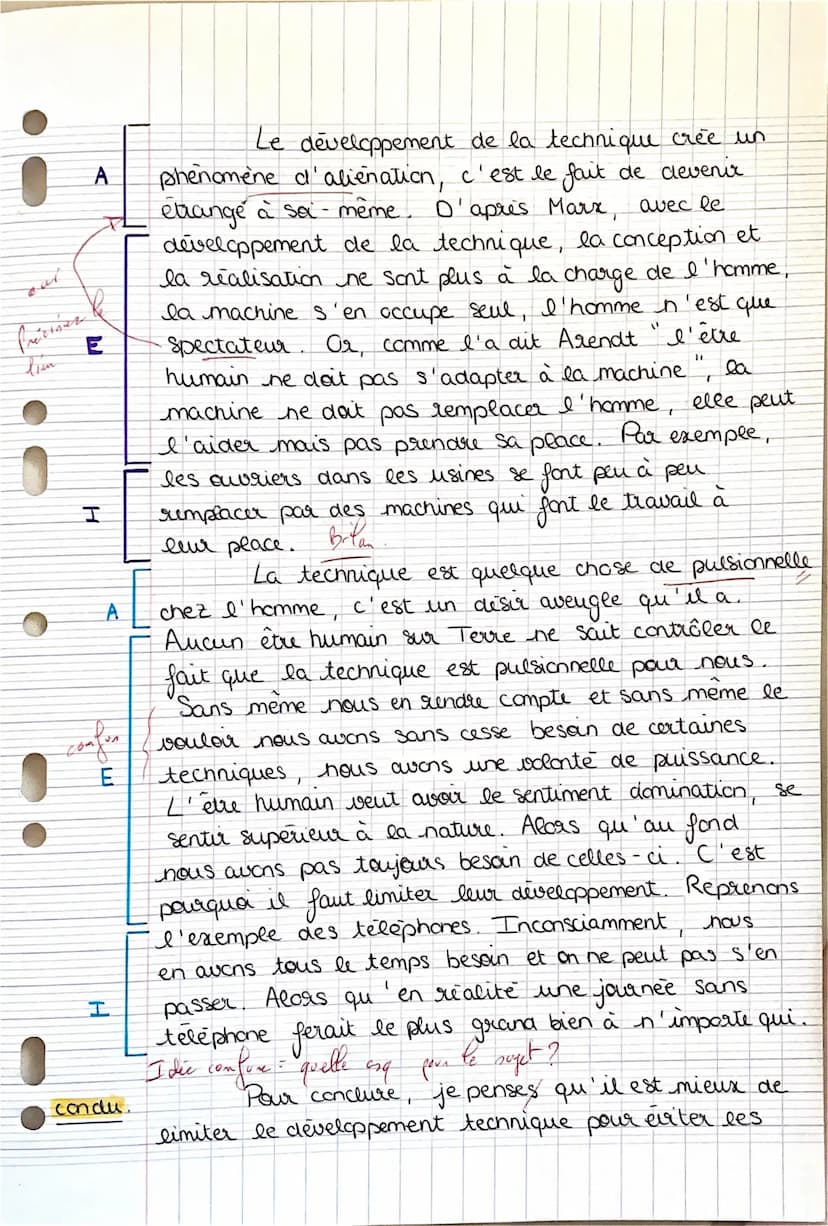 Le développement de la technique crée un
A phénomène d'aliénation, c'est le fait de devenir
étrangé à soi-même. D'après Marx, avec le
développement de la technique, la conception et
oui la réalisation ne sont plus à la charge de l'homme,
Préciser le la machine s'en occupe seul, l'homme n'est que
lien E spectateur. Or, comme l'a dit Arendt "l'être
humain ne doit pas s'adapter à la machine", la
machine ne doit pas remplacer l'homme, elle peut
l'aider mais pas prendre sa place. Par exemple,
les ouvriers dans les usines se font peu à peu
I remplacer par des machines qui font le travail à
leur place. Bilan.
La technique est quelque chose de pulsionnelle
A chez l'homme, c'est un désir aveugle qu'il a.
Aucun être humain sur Terre ne sait contrôler le
fait que la technique est pulsionnelle pour nous.
Sans même nous en rendre compte et sans même le
confus vouloir nous avons sans cesse besoin de certaines
E techniques, nous avons une volonté de puissance.
L'être humain veut avoir le sentiment domination, se
sentir supérieur à la nature. Alors qu'au fond
nous avons pas toujours besoin de celles-ci. C'est
pourquoi il faut limiter leur développement. Reprenons
l'exemple des téléphones. Inconsciamment, nous
en avons tous le temps besoin et on ne peut pas s'en
I passer. Alors qu'en réalité une journée sans
téléphone ferait le plus grand bien à n'importe qui.
Idée confuse = quelle csq pour le sujet ?
Pour conclure, je penses qu'il est mieux de
conclu. limiter le développement technique pour éviter les